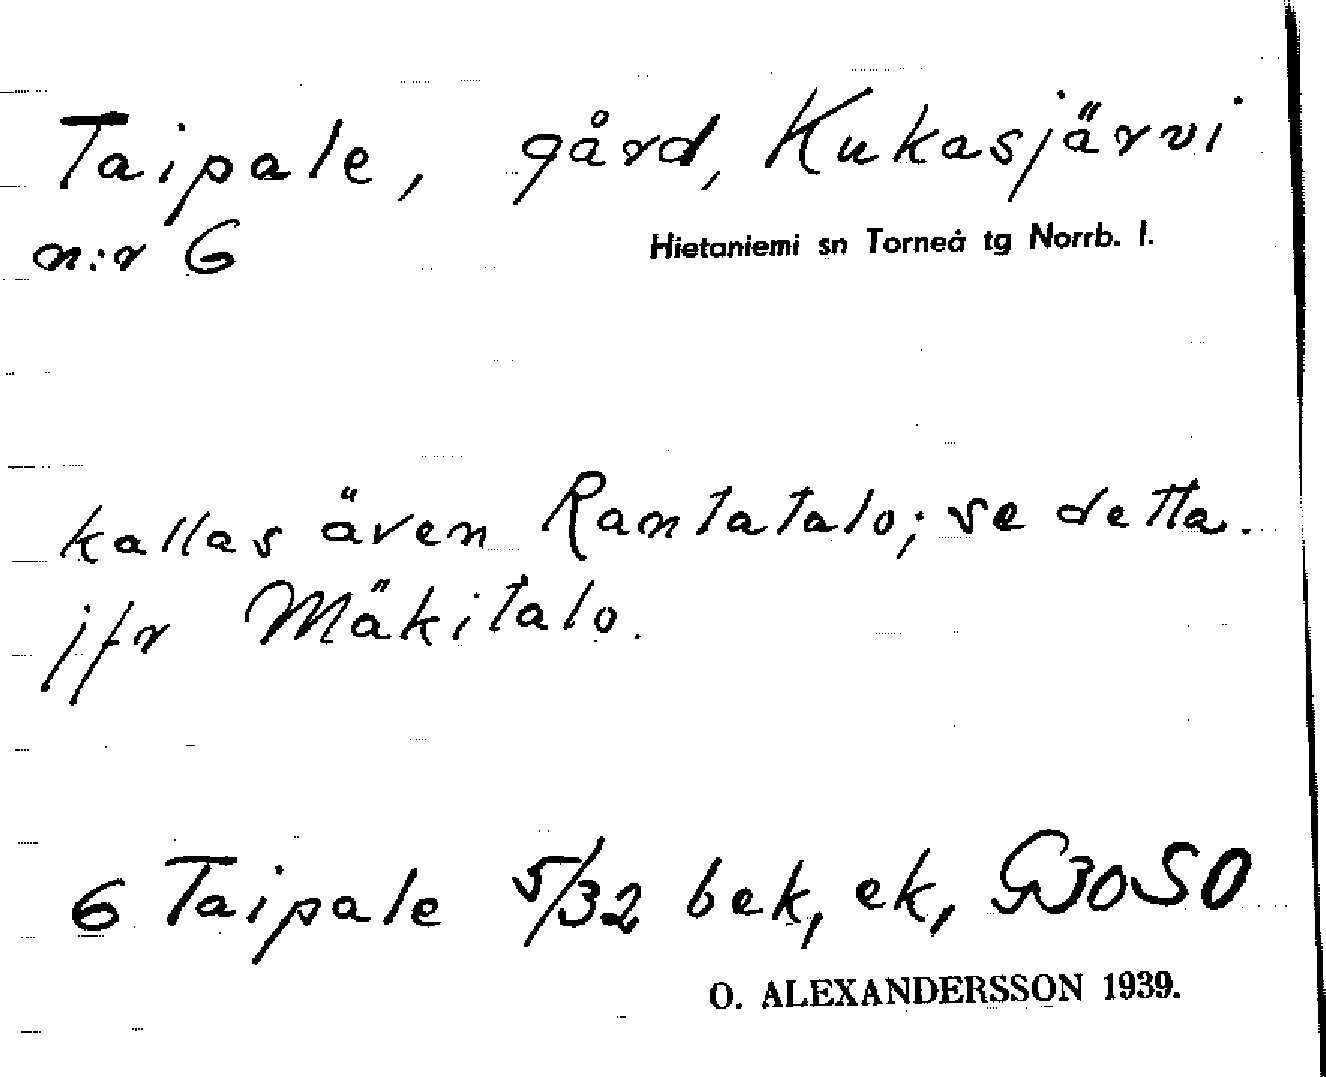 Taipale, gård, Kukasjärvi
n:r 6
Hietaniemi sn Torneå tg Norrb. l.
kallas även Rantatalo; se detta.
jfr Mäkitalo.
6 Taipale 5/32 bek, ek, GJoSO
O. ALEXANDERSSON 1939.